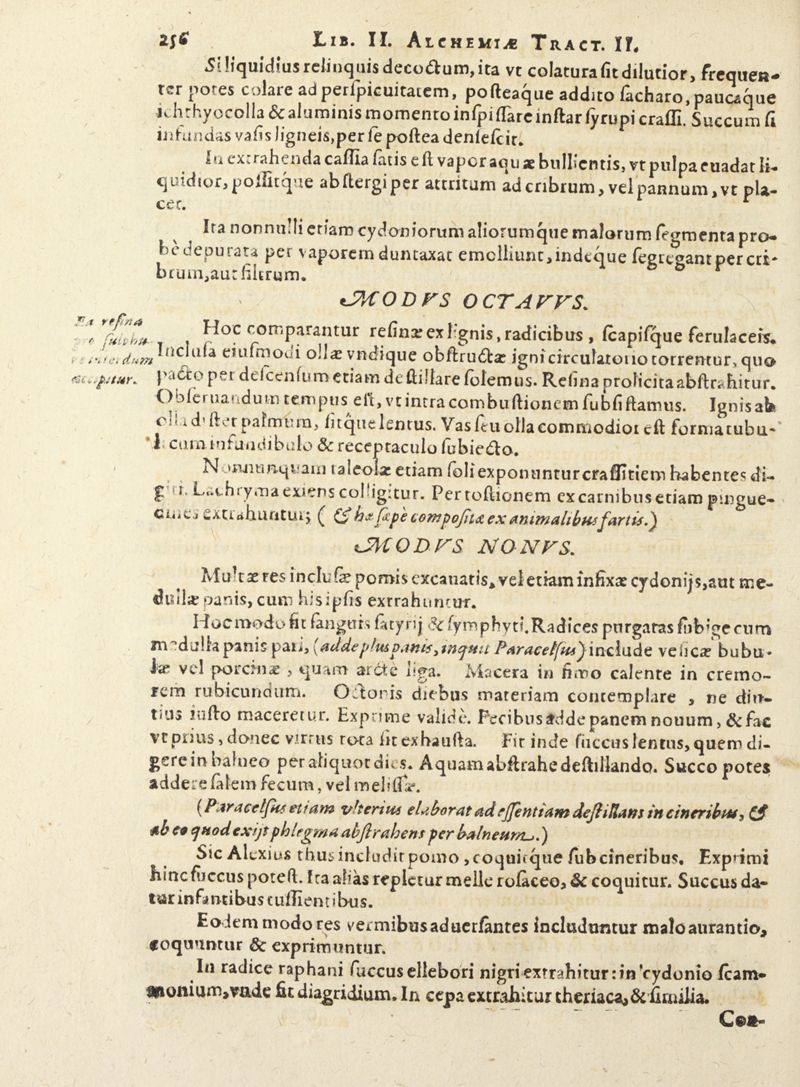 256 LIB. II. ALCHEMIÆ TRACT. II.
Si liquidius relinquis decoctum, ita vt colatura sit dilutior, frequen-
ter potes colare ad perspicuitatem, posteaque addito sacharo, paucaque
ichthyocolla & aluminis momento inspissare instar syrupi crassi. Succum si
infundas vasis ligneis, per se postea densescit.
In extrahenda cassia satis est vapor aquæ bullientis, vt pulpa euadat li-
quidior, possitque abstergi per attritum ad cribrum, vel pannum, vt pla-
cet.
Ita nonnulli etiam cydoniorum aliorumque malorum segmenta pro-
be depurata per vaporem duntaxat emolliunt, indeque segregant per cri-
brum, aut filtrum.
MODVS OCTAVVS.
Hoc comparantur resinæ ex lignis, radicibus, scapisque ferulaceis.
Inclusa eiusmodi ollæ vndique obstructæ igni circulatorio torrentur, quo
pacto per descensum etiam destillare solemus. Resina prolicita abstrahitur.
Obseruandum tempus est, vt intra combustionem subsistamus. Ignis ab
olla distet palmum, sitque lentus. Vas seu olla commodior est forma tubu-
li cum infundibulo & receptaculo subiecto.
Nonnunquam taleolæ etiam soli exponuntur crassitiem habentes di-
giti. Lachryma exiens colligitur. Per tostionem ex carnibus etiam pingue-
dines extrahuntur; ( & hæ sæpè compositæ ex animalibus fartis.)
MODVS NONVS.
Multæ res inclusæ pomis excauatis, vel etiam infixæ cydonijs, aut me-
dullæ panis, cum his ipsis extrahuntur.
Hoc modo fit sanguis satyrij & symphyti. Radices purgatas subige cum
medulla panis pari, (adde plus panis, inquit Paracelsus) include vesicæ bubu-
læ vel porcinæ, quam arctè liga. Macera in fimo calente in cremo-
rem rubicundum. Octonis diebus materiam contemplare, ne diu-
tius iusto maceretur. Exprime validè. Fecibus adde panem nouum, & fac
vt prius, donec virtus tota sit exhausta. Fit inde succus lentus, quem di-
gere in balneo per aliquot dies. Aquam abstrahe destillando. Succo potes
addere salem fecum, vel melissæ.
(Paracelsus etiam vlterius elaborat ad essentiam destillans in cineribus, &
ab eo quod exijt phlegma abstrahens per balneum.)
Sic Alexius thus includit pomo, coquitque sub cineribus. Exprimi
hinc succus potest. Ita aliàs repletur melle rosaceo, & coquitur. Succus da-
tur infantibus tussientibus.
Eodem modo res vermibus aduersantes includuntur malo aurantio,
coquuntur & exprimuntur.
In radice raphani succus ellebori nigri extrahitur: in cydonio scam-
monium, vnde fit diagridium. In cepa extrahitur theriaca, & similia.
Con-